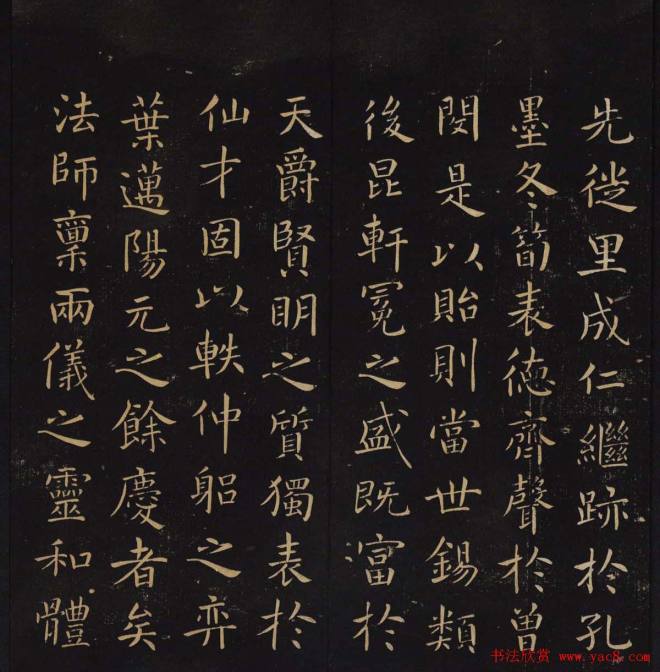 先徙里成仁繼跡於孔
墨冬筍表徳齊聲於曾
閔是以貽則當世錫類
後昆軒冕之盛既富於
天爵賢眀之質獨表於
仙才固以軼仲躳之弈
葉邁陽元之餘慶者矣
法師稟兩儀之靈和體
书法欣赏 www.yac8.com